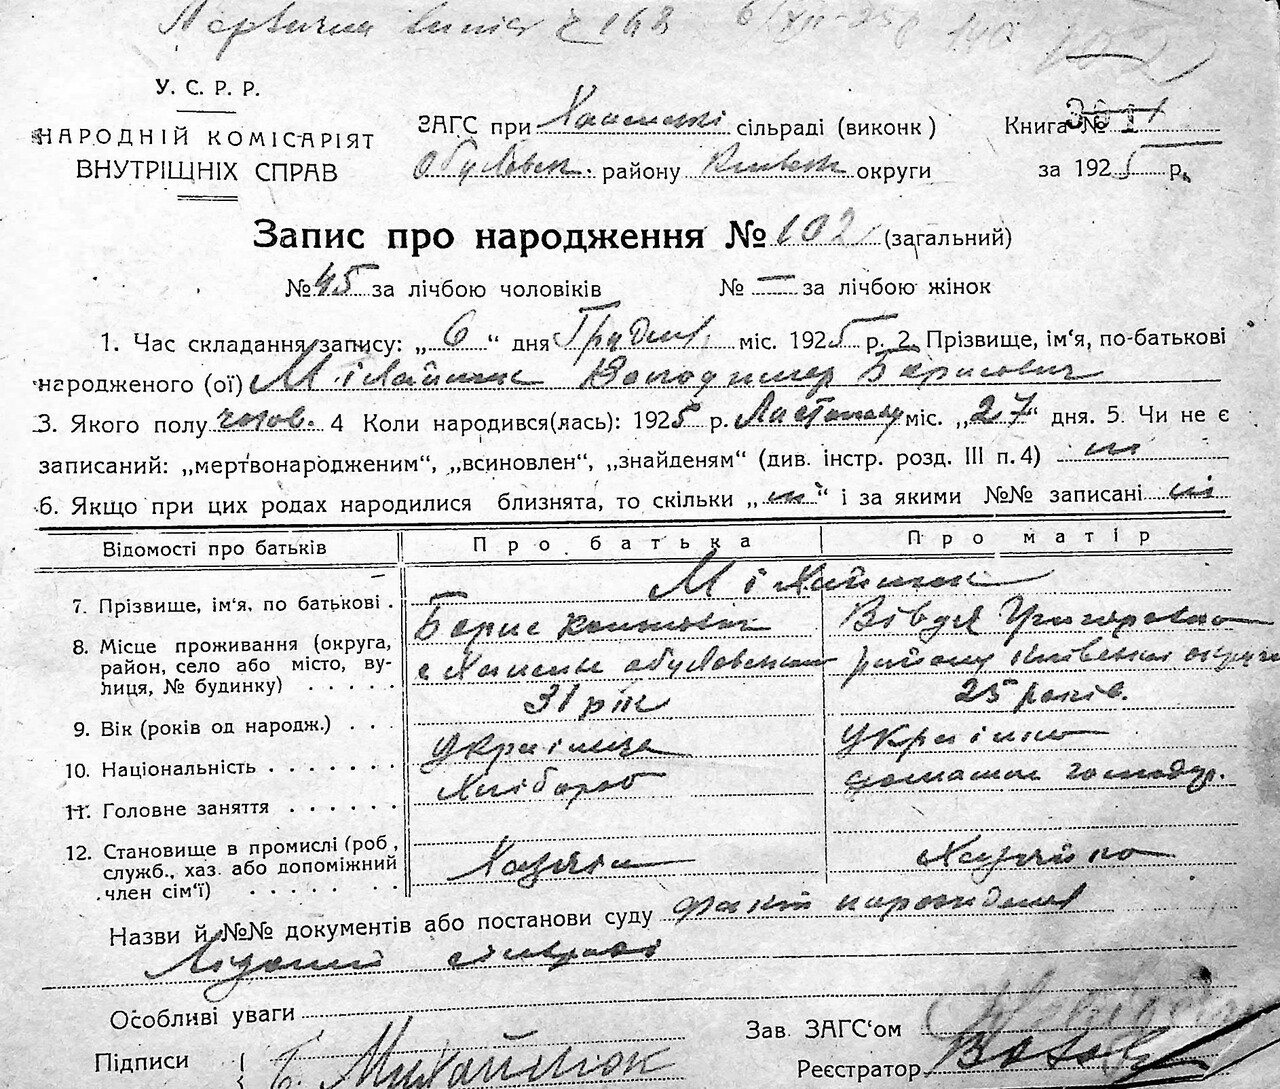 № 168 6/XII-25 р
У. С. Р. Р.
НАРОДНІЙ КОМІСАРІЯТ
ВНУТРІЩНІХ СПРАВ
ЗАГС при сільраді (виконк)
Обухівськ. району Київськ округи
Книга №
за 1925 р.
Запис про народження № 102 (загальний)
№ 45 за лічбою чоловіків № — за лічбою жінок
1. Час складання запису: „ 6 “ дня Грудня міс. 1925 р. 2. Прізвище, ім‘я, по-батькові
народженого (ої) Міхайлюк Володимер Борисович
3. Якого полу чолов. 4 Коли народився(лась): 1925 р. Листопаду міс. „27“ дня. 5. Чи не є
записаний: „мертвонародженим“, „всиновлен“, „знайденям“ (див. інстр. розд. III п. 4) ні
6. Якщо при цих родах народилися близнята, то скільки „ні“ і за якими №№ записані ні
Відомості про батьків Про батька Про матір
Міхайлюк
7. Прізвище, ім‘я, по батькові .
Борис Вівдя Григоровна
8. Місце проживання (округа,
район, село або місто, ву-
лиця, № будинку) . . . . .
Обухівського району Київської округи
9. Вік (років од народж.) . . . 31 рік 25 років.
10. Національність . . . . . . . українець українка
11. Головне заняття . . . . . . хлібороб домашнє господар.
12. Становище в промислі (роб,
служб., хаз. або допоміжний
член сім‘ї) . . . . . .
Хазяїн Хазяйка
Назви й №№ документів або постанови суду факт народження
Особливі уваги
Зав. ЗАГС‘ом
Підписи Б. Михайлюк
Реєстратор